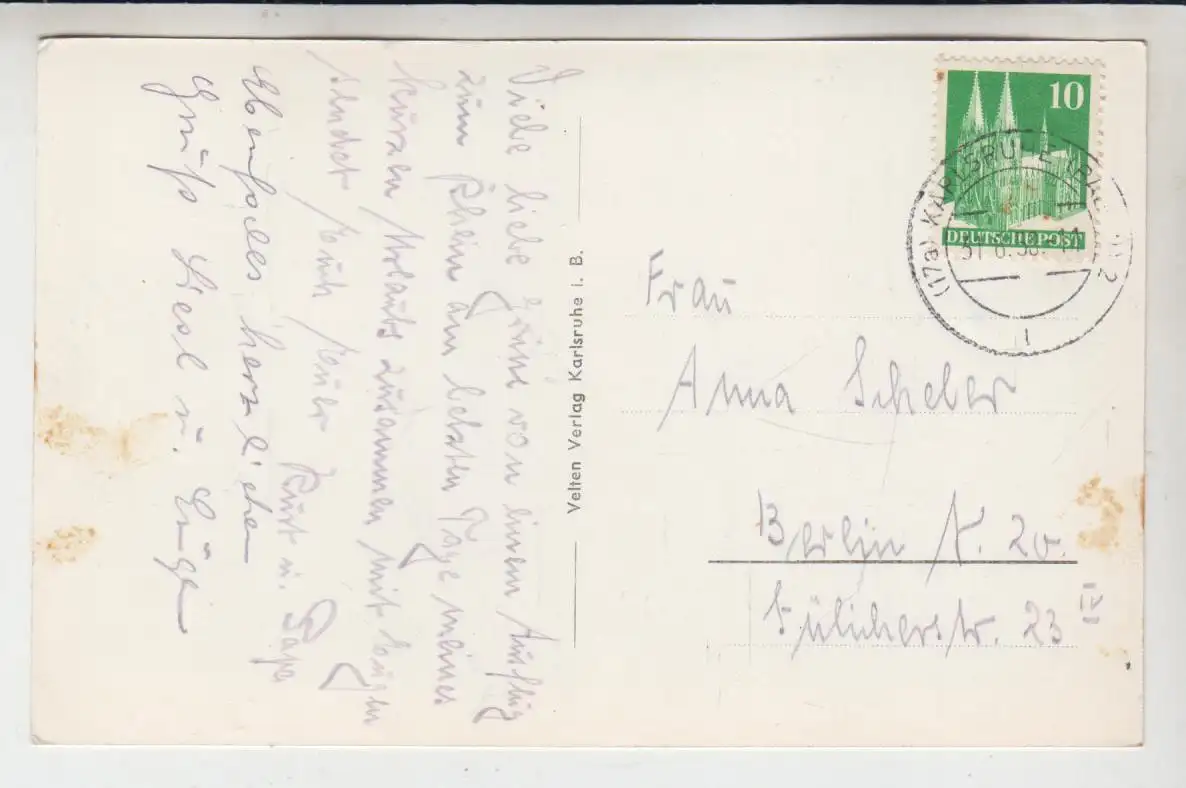 Viele liebe Grüße von einem Ausflug
zum Rhein am letzten Tage meines
kurzen Urlaubs zusammen mit Eugen
sendet Euch Euer Kurt u. Papa
Ebenfalls herzlichen
Gruß Liesl u. Eugen
Velten Verlag Karlsruhe i. B.
10
DEUTSCHE POST
(17a) KARLSRUHE
2
Frau
Anna Scheler
Berlin N. 20.
Jülicherstr. 23
IVI